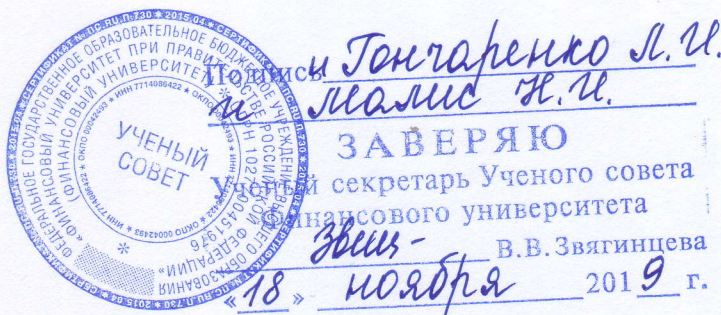 Подписи Гончаренко Л.И.
и Малис Н.И.
ЗАВЕРЯЮ
Ученый секретарь Ученого совета
Финансового университета
В.В. Звягинцева
«18» ноября 2019 г.
УЧЕНЫЙ
СОВЕТ
ФЕДЕРАЛЬНОЕ ГОСУДАРСТВЕННОЕ ОБРАЗОВАТЕЛЬНОЕ БЮДЖЕТНОЕ УЧРЕЖДЕНИЕ ВЫСШЕГО ОБРАЗОВАНИЯ
«ФИНАНСОВЫЙ УНИВЕРСИТЕТ ПРИ ПРАВИТЕЛЬСТВЕ РОССИЙСКОЙ ФЕДЕРАЦИИ»
(ФИНАНСОВЫЙ УНИВЕРСИТЕТ)
ИНН 7714086422 * ОКПО 00042493